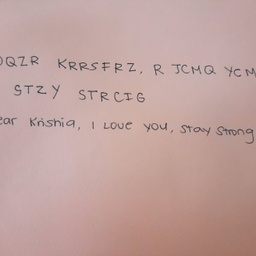 DQZR KRRSFRZ, R JCMQ YCM
STZY STRCIG
ear Krishia, I Love you, stay strong